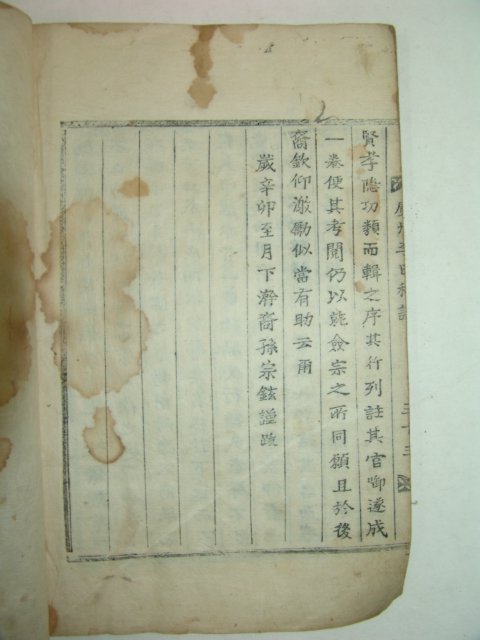 賢孝隱功類而輯之序其行列註其官啣遂成
一卷便其考閱仍以龍僉宗之所同願且於後
裔欽仰激勵似當有助云爾
歲辛卯至月下澣裔孫宗鉉謹跋